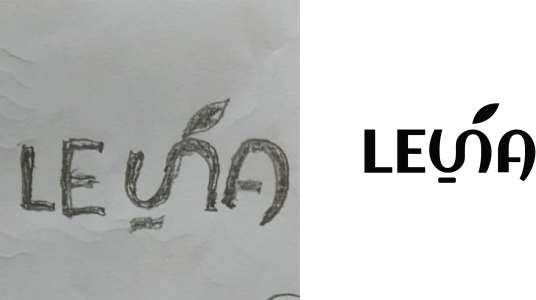 LEUNA
LEUNA